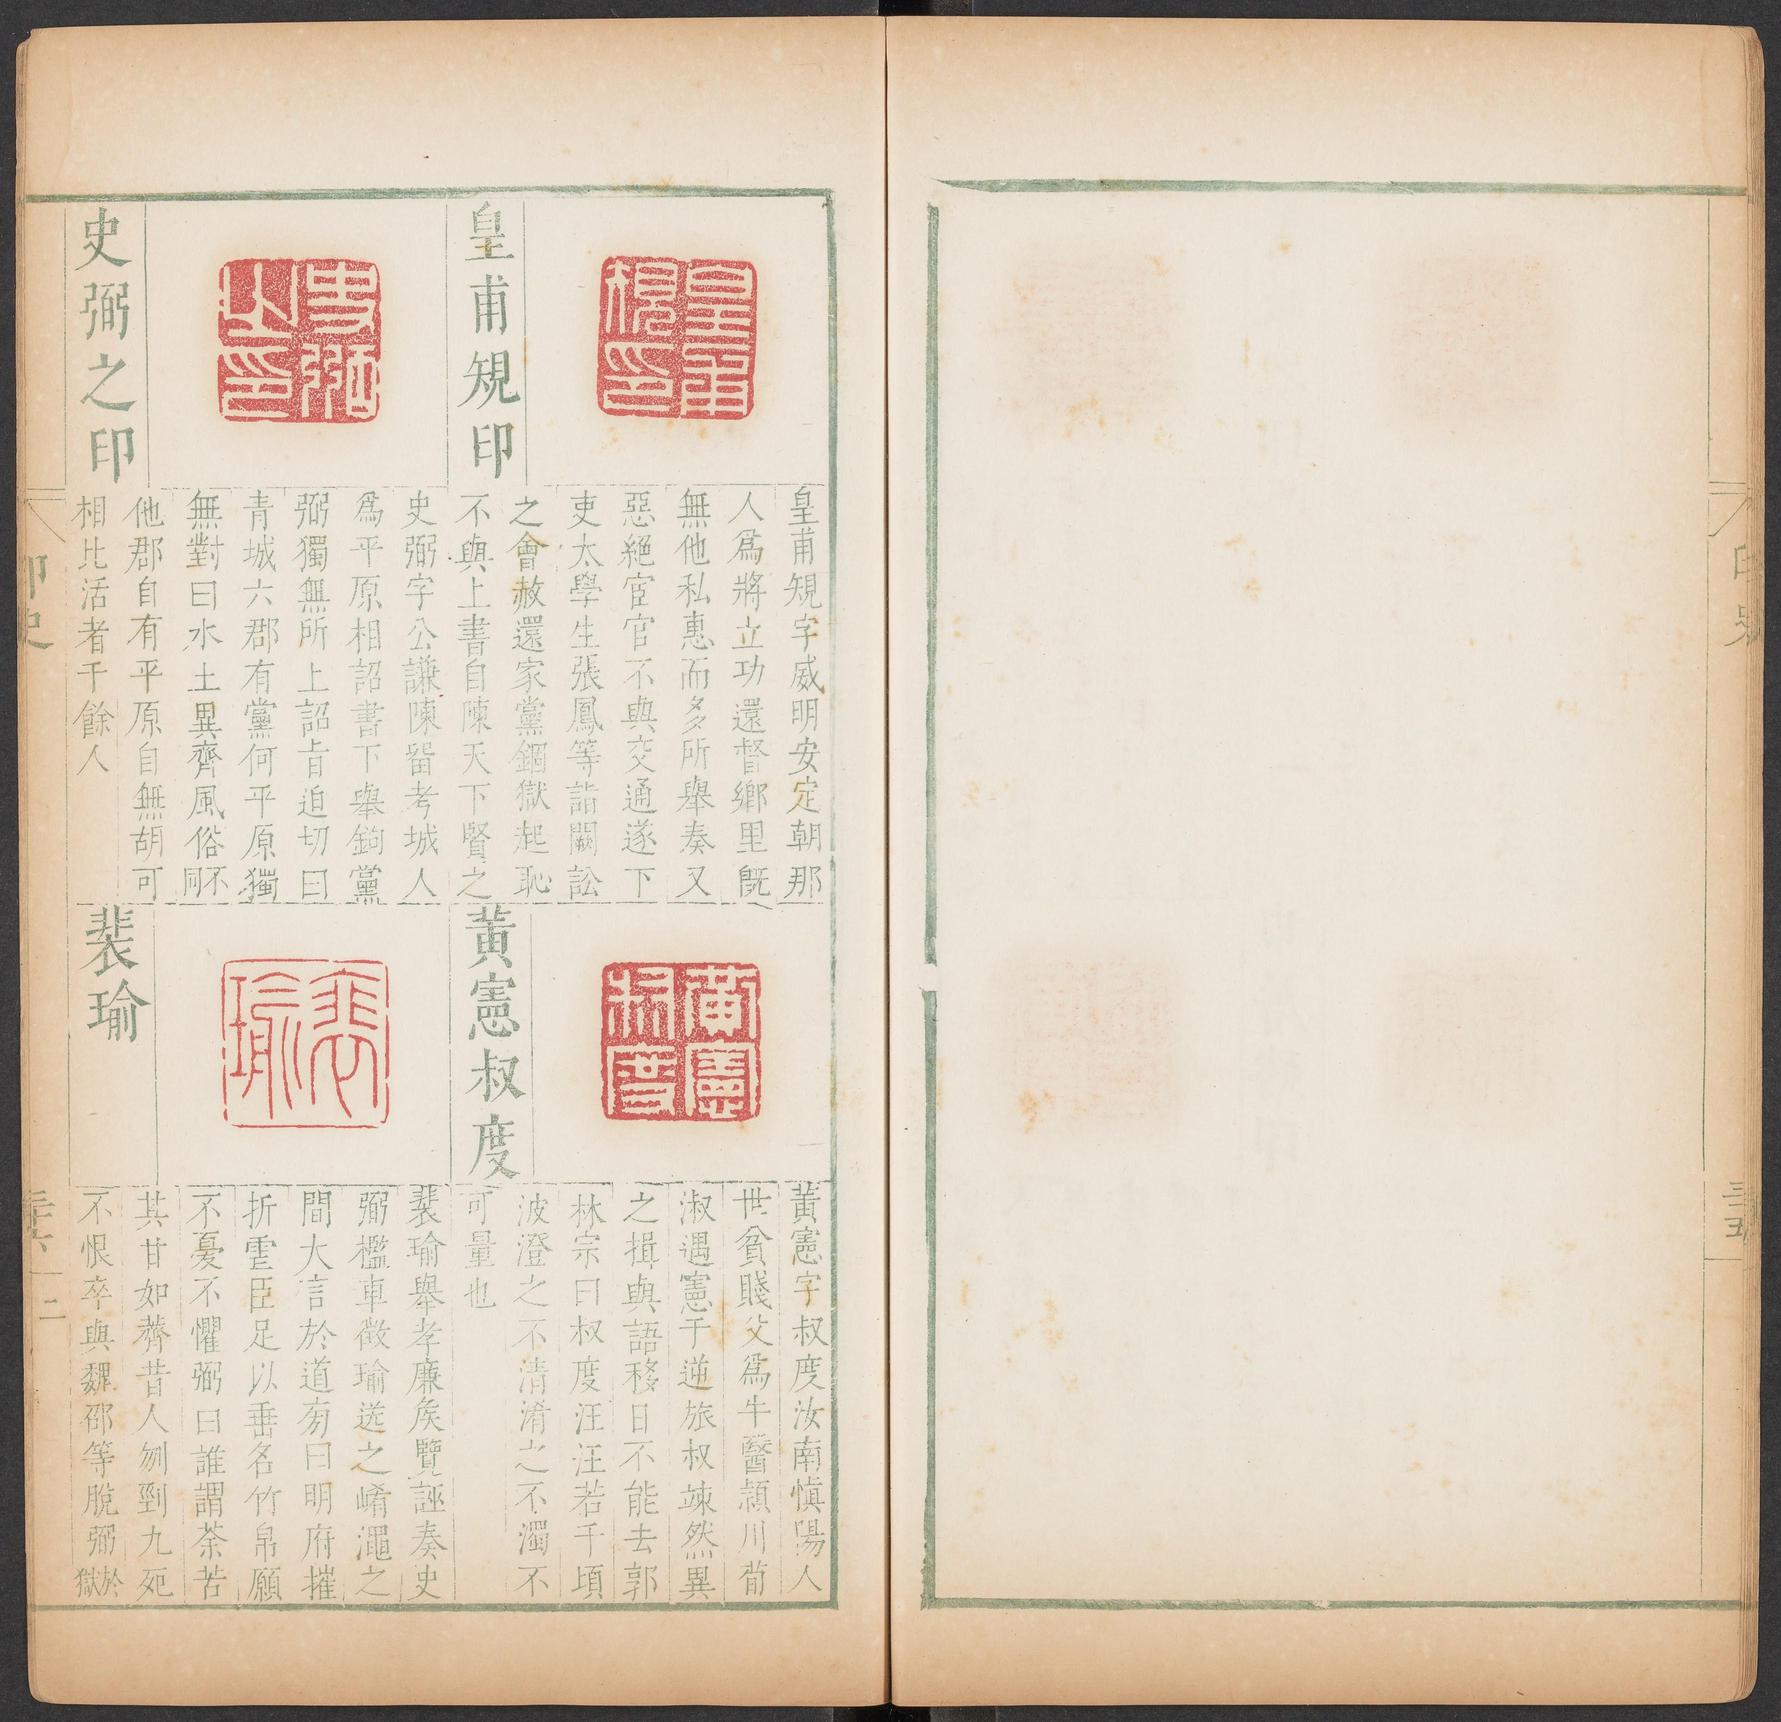 印史
三五
皇甫規印
皇甫規印
皇甫規字威明安定朝那
人爲將立功還督鄉里既
無他私惠而多所舉奏又
惡絕宦官不與交通遂下
吏太學生張鳳等詣闕訟
之會赦還家黨錮獄起恥
不與上書自陳天下賢之
史弼之印
史弼之印
史弼字公謙陳留考城人
爲平原相詔書下舉鉤黨
弼獨無所上詔旨迫切曰
青城六郡有黨何平原獨
無對曰水土異齊風俗不同
他郡自有平原自無胡可
相比活者千餘人
黃憲叔度
黃憲叔度
黃憲字叔度汝南慎陽人
世貧賤父爲牛醫潁川荀
淑遇憲于逆旅叔竦然異
之揖與語移日不能去郭
林宗曰叔度汪汪若千頃
波澄之不清淆之不濁不
可量也
裴瑜
裴瑜
裴瑜舉孝廉矦覽誣奏史
弼檻車徵瑜送之崤澠之
間大言於道旁曰明府摧
折雲臣足以垂名竹帛願
不憂不懼弼曰誰謂荼苦
其甘如薺昔人刎剄九死
不恨卒與魏邵等脫弼於獄
印史
三六